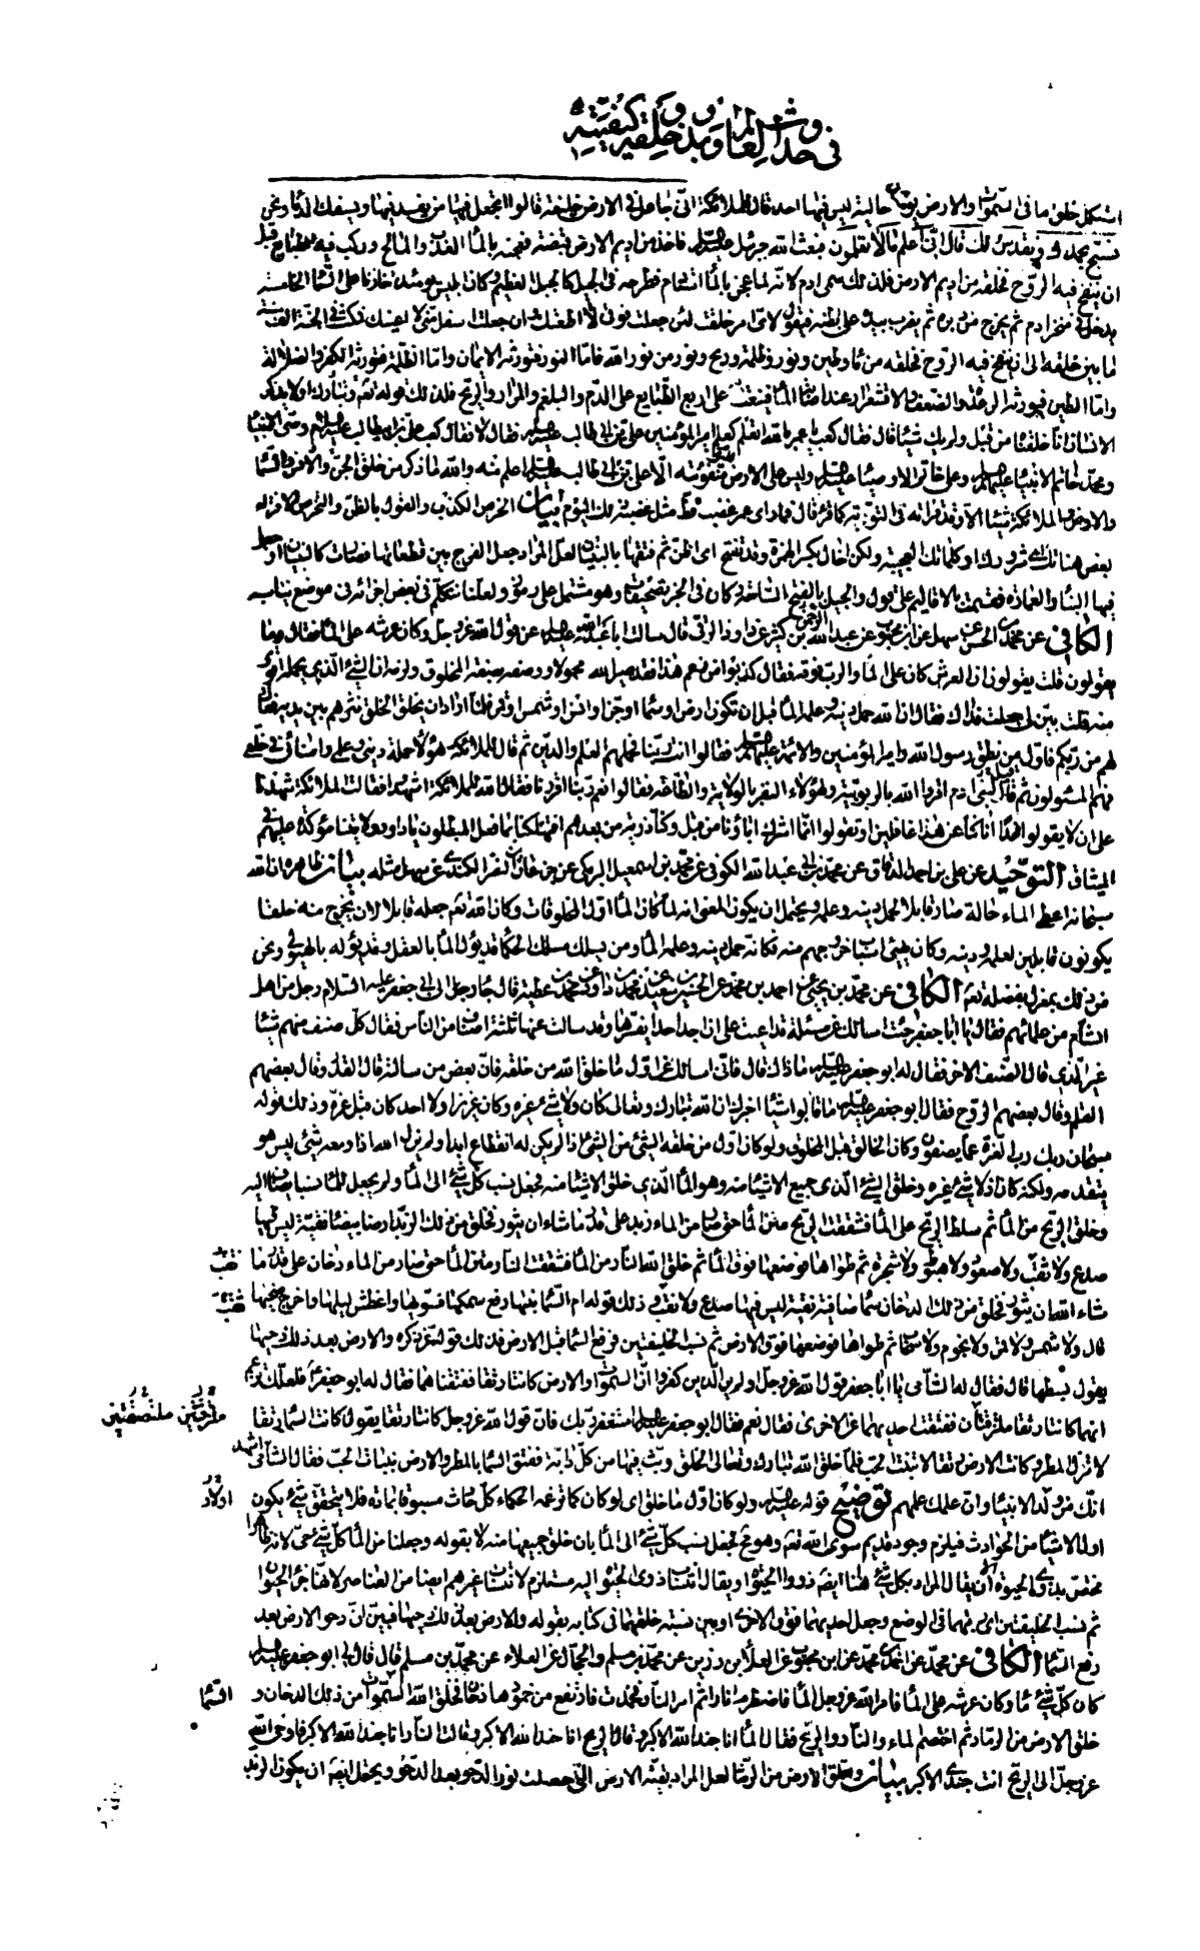 في حدوث العالم وبدء خلقه وكيفيته
استكمل خلق ما في السموات والارض يومئذ خالية ليس فيها احد قال للملائكة اني جاعل في الارض خليفة قالوا اتجعل فيها من يفسد فيها ويسفك الدماء ونحن
نسبح بحمدك ونقدس لك قال اني اعلم ما لا تعلمون فبعث الله جبرئيل عليه السلام فاخذ من اديم الارض قبضة فعجنه بالماء العذب والمالح وركب فيه الطبايع قبل
ان ينفخ فيه الروح فخلقه من اديم الارض فلذلك سمي ادم لانه لما عجن بالماء استادم فطرحه في الجبل كالجبل العظيم وكان ابليس يومئذ خازنا على السماء الخامسة
يدخل في منخر ادم ثم يخرج من دبره ثم يضرب بيده على بطنه فيقول لاي امر خلقت لئن جعلت فوقي لا اطعتك وان جعلت اسفل مني لا اعينك فمكث في الجنة الف سنة
ما بين خلقه الى ان ينفخ فيه الروح فخلقه من ماء وطين ونور وظلمة وريح ونور من نور الله فاما النور فيورثه الايمان واما الظلمة فيورثه الكفر والضلالة
واما الطين فيورثه الرعدة والضعف والاقشعرار عند اصابة الماء فينبعث على اربع الطبايع على الدم والبلغم والمرار والريح فذلك قوله تعالى وتبارك اولا يذكر
الانسان انا خلقناه من قبل ولم يك شيئا قال فقال كعب يا عمر بالله اتعلم كعلم امير المؤمنين علي بن ابي طالب عليه السلام فقال لا فقال كعب علي بن ابي طالب عليه السلام وصي الانبياء
ومحمد خاتم الانبياء عليهم السلام وعلي خاتم الاوصياء عليهم السلام وليس على الارض اليوم منفوسة الا علي بن ابي طالب عليه السلام اعلم منه والله ما ذكر من خلق الجن والانس والسماء
والارض والملائكة شيئا الا وقد قراته في التورية كما قرء قال فما راي عمر غضب قط مثل غضبه ذلك اليوم بيان الخرص الكذب والقول بالظن
فيها البناء والعمارة فقسمت بالاقاليم
الكافي عن محمد بن الحسن عن سهل عن ابن محبوب عن عبد الرحمن بن كثير عن داود الرقي قال سالت ابا عبد الله عليه السلام عن قول الله عز وجل وكان عرشه على الماء فقال ما
يقولون قلت يقولون ان العرش كان على الماء والرب فوقه فقال كذبوا من زعم هذا فقد صير الله محمولا ووصفه بصفة المخلوق ولزمه ان الشيء الذي يحمله اقوى
منه قلت بين لي جعلت فداك فقال ان الله حمل دينه وعلمه الماء قبل ان تكون ارض او سماء او جن او انس او شمس او قمر فلما اراد ان يخلق الخلق نثرهم بين يديه فقال
لهم من ربكم فاول من نطق رسول الله وامير المؤمنين والائمة عليهم السلام فقالوا انت ربنا فحملهم العلم والدين ثم قال للملائكة هؤلاء حملة ديني وعلمي وامنائي في خلقي
وهم المسئولون ثم قال لبني ادم اقروا لله بالربوبية ولهؤلاء النفر بالولاية والطاعة فقالوا نعم ربنا اقررنا فقال الله للملائكة اشهدوا فقالت الملائكة شهدنا
على ان لا يقولوا غدا انا كنا عن هذا غافلين او تقولوا انما اشرك اباؤنا من قبل وكنا ذرية من بعدهم افتهلكنا بما فعل المبطلون يا داود ولايتنا مؤكدة عليهم في
الميثاق التوحيد عن علي بن احمد الدقاق عن محمد بن ابي عبد الله الكوفي عن محمد بن اسمعيل البرمكي عن الكندي عن سهل مثله بيان ظاهره ان الله
سبحانه اعطى الماء حالة صار قابلا لحمل دينه وعلمه ويحتمل ان يكون المعنى انه لما كان الماء اول المخلوقات وكان الله تعالى جعله قابلا لان يخرج منه خلقا
يكونون قابلين لعلمه ودينه وكان يهيئ اسباب خروجهم منه فكانه حمل دينه وعلمه الماء ومن يسلك مسلك الحكماء قد يؤول الماء بالعقل وقد يؤوله بالهيولى ونحن
من ذلك بمعزل بفضله تعالى الكافي عن محمد بن يحيى عن احمد بن محمد عن الحسين بن سعيد عن محمد بن داود عن محمد بن عطية قال جاء رجل الى ابي جعفر عليه السلام رجل من اهل
الشام من علمائهم فقال يا ابا جعفر جئت اسالك عن مسئلة قد اعيت علي ان اجد احدا يفسرها وقد سالت عنها ثلثة اصناف من الناس فقال كل صنف منهم شيئا
غير الذي قال الصنف الاخر فقال له ابو جعفر عليه السلام ما ذاك قال فاني اسالك عن اول ما خلق الله من خلقه فان بعض من سالته قال القدر وقال بعضهم
القلم وقال بعضهم الروح فقال ابو جعفر عليه السلام ما قالوا شيئا اخبرك ان الله تبارك وتعالى كان ولا شيء غيره وكان عزيزا ولا احد كان قبل عزه وذلك قوله
سبحان ربك رب العزة عما يصفون وكان الخالق قبل المخلوق ولو كان اول من خلقه الشيء من الشيء اذا لم يكن له انقطاع ابدا ولم يزل الله اذا ومعه شيء ليس هو
يتقدمه ولكنه كان اذ لا شيء غيره وخلق الشيء الذي جميع الاشياء منه وهو الماء الذي خلق الاشياء منه فجعل نسب كل شيء الى الماء ولم يجعل للماء نسبا يضاف اليه
وخلق الريح من الماء ثم سلط الريح على الماء فشققت الريح متن الماء حتى ثار من الماء زبد على قدر ما شاء ان يثور فخلق من ذلك الزبد ارضا بيضاء نقية ليس فيها
صدع ولا ثقب ولا صعود ولا هبوط ولا شجرة ثم طواها فوضعها فوق الماء ثم خلق الله النار من الماء فشققت النار متن الماء حتى ثار من الماء دخان على قدر ما
نقب
شاء الله ان يثور فخلق من ذلك الدخان سماء صافية نقية ليس فيها صدع ولا نقب وذلك قوله ام السماء بنيها رفع سمكها فسويها واغطش ليلها واخرج ضحيها
ثقب
قال ولا شمس ولا قمر ولا نجوم ولا سحاب ثم طواها فوضعها فوق الارض ثم نسب الخليقتين فرفع السماء قبل الارض فذلك قوله عز ذكره والارض بعد ذلك دحيها
يقول بسطها قال فقال له الشامي يا ابا جعفر قول الله عز وجل اولم ير الذين كفروا ان السموات والارض كانتا رتقا ففتقناهما فقال له ابو جعفر فلعلك تزعم
انهما كانتا رتقا ملتزقتان ففتقت احديهما عن الاخرى فقال نعم فقال ابو جعفر عليه السلام استغفر ربك فان قول الله عز وجل كانتا رتقا يقول كانت السماء رتقا
ملتزقتين ملتصقتين
لا تنزل المطر وكانت الارض رتقا لا تنبت الحب فلما خلق الله تبارك وتعالى الخلق وبث فيها من كل دابة ففتق السماء بالمطر والارض بنبات الحب فقال الشامي اشهد
انك من ولد الانبياء وان علمك علمهم توضيح قوله عليه السلام ولو كان اول ما خلق اي لو كان كما تزعمه الحكماء كل حادث مسبوق بمادة فلا يتحقق شيء يكون
اولاد
اول الاشياء من الحوادث فيلزم وجود قديم سوى الله تعالى وهو مح فجعل نسب كل شيء الى الماء بان خلق جميعها منه لا بقوله وجعلنا من الماء كل شيء حي لانه ظاهرا
مختص بذوي الحيوة الا ان يقال المراد بكل شيء هنا ايضا ذوو الحيوة
ثم نسب الخليقتين اي رتبهما في الوضع وجعل احديهما فوق الاخرى او بين نسبة خلقهما في كتابه بقوله والارض بعد ذلك دحيها فبين ان دحو الارض بعد
رفع السماء الكافي عن محمد عن احمد بن محمد عن ابن محبوب عن العلاء بن رزين عن محمد بن مسلم والحجال عن العلاء عن محمد بن مسلم قال قال لي ابو جعفر عليه السلام
كان كل شيء ماء وكان عرشه على الماء فامر الله عز وجل الماء فاضطرم نارا ثم امر النار فخمدت فارتفع من خمودها دخان فخلق الله السموات من ذلك الدخان و
السماء
خلق الارض من الرماد ثم اختصم الماء والنار والريح فقال الماء انا جند الله الاكبر وقال الريح انا جند الله الاكبر وقالت النار انا جند الله الاكبر فاوحى الله
عز وجل الى الريح انت جندي الاكبر بيان وخلق الارض من الرماد لعل المراد بقية الارض التي حصلت بعد الدحو ويحتمل ايضا ان يكون الزبد